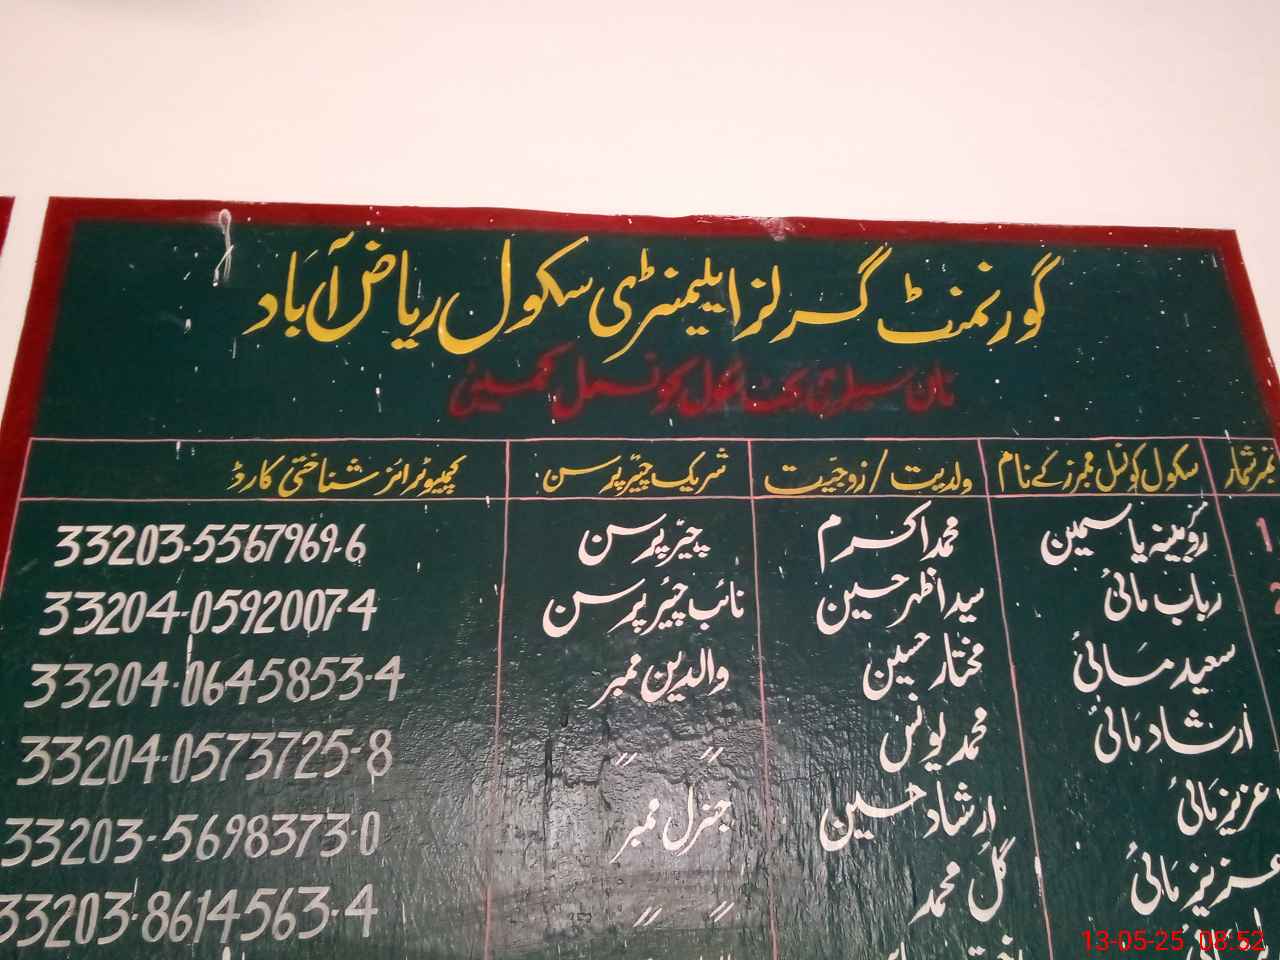 گورنمنٹ گرلز ایلیمنٹری سکول ریاض آباد
نان سیلری بجٹ سکول کونسل کمیٹی
نمبر شمار سکول کونسل ممبرز کے نام ولدیت / زوجیت شریک چیئرپرسن کمپیوٹرائز شناختی کارڈ
1 روبینہ یاسمین محمد اکرم چیئرپرسن 33203-5567969-6
2 رباب مائی سید اظہر حسین نائب چیئرپرسن 33204-0592007-4
سعید مائی مختار حسین والدین ممبر 33204-0645853-4
ارشاد مائی محمد یونس " " 33204-0573725-8
عزیز مائی ارشاد حسین جنرل ممبر 33203-5698373-0
عزیز مائی گل محمد " " 33203-8614563-4
13-05-25 08:52